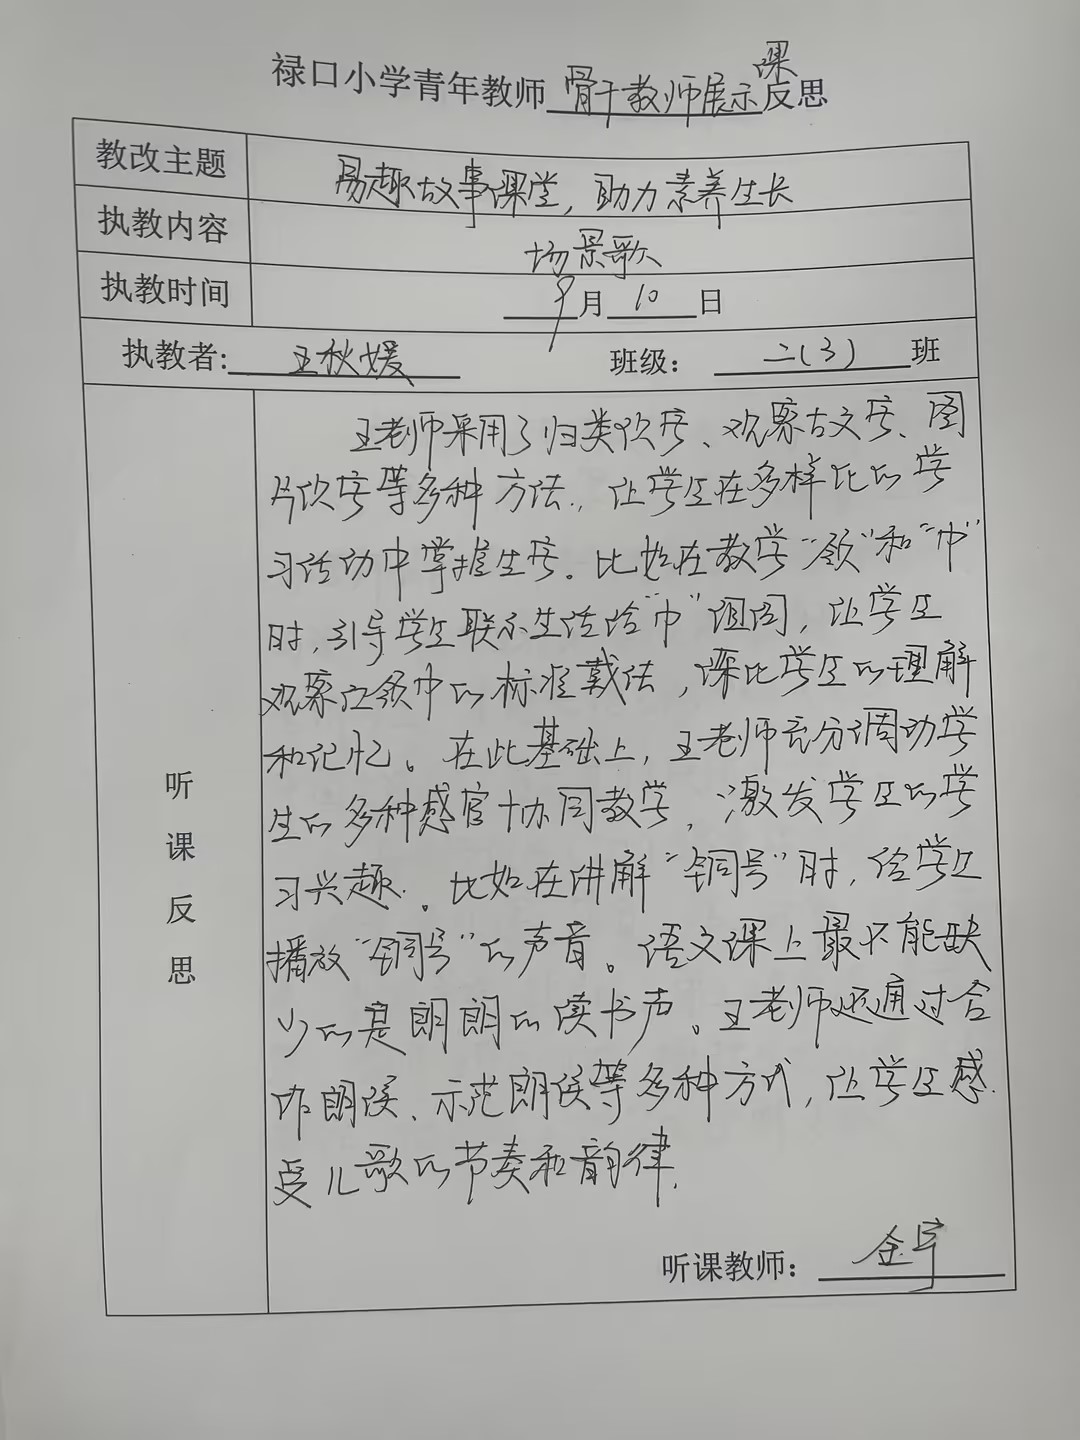 禄口小学青年教师骨干教师展示课反思
教改主题 易趣故事课堂，助力素养生长
执教内容 场景歌
执教时间 9月10日
执教者:王秋媛 班级：二(3)班
听课反思
王老师采用了归类识字、观察古文字、图
片识字等多种方法，让学生在多样化的学
习活动中掌握生字。比如在教学“领”和“巾”
时，引导学生联系生活给“巾”组词，让学生
观察红领巾的标准戴法，深化学生的理解
和记忆。在此基础上，王老师充分调动学
生的多种感官协同教学，激发学生的学
习兴趣。比如在讲解“铜号”时，给学生
播放“铜号”的声音。语文课上最不能缺
少的是朗朗的读书声。王老师还通过合
作朗读、示范朗读等多种方式，让学生感
受儿歌的节奏和韵律.
听课教师：金宇